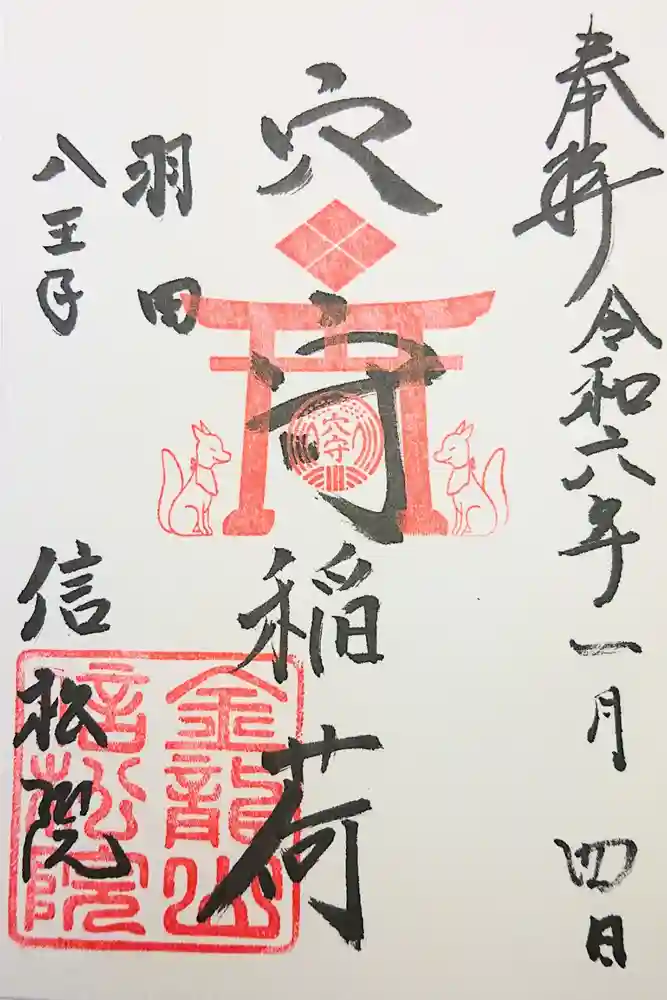 奉拝 令和六年一月四日
穴守稲荷
羽田
八王子
信松院
穴守
金龍山
信松院